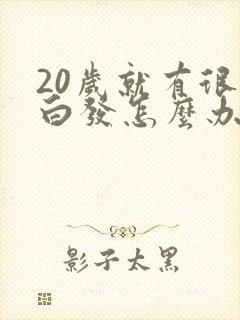 20歲就有很
白發怎麼办
影子太黑